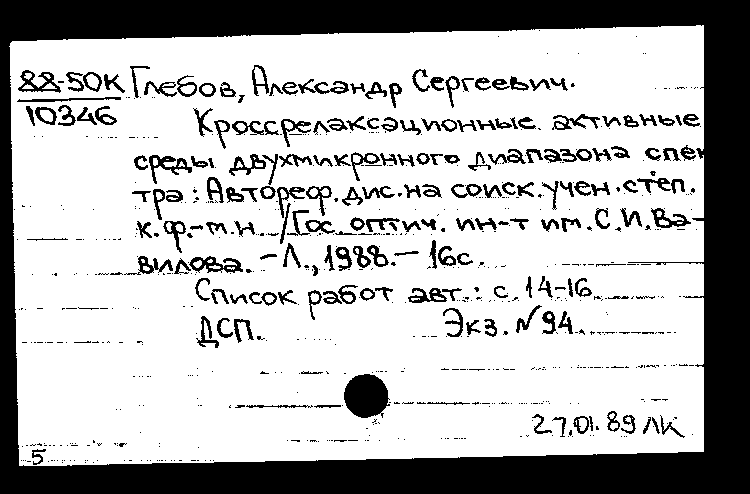 88-50К Глебов, Александр Сергеевич.
10346
Кроссрелаксационные активные
среды двухмикронного диапазона спек
тра: Автореф. дис. на соиск. учен. степ.
к.ф.-м.н. /Гос. оптич. ин-т им. С.И. Ва-
вилова. - Л., 1988. - 16с.
Список работ авт.: с. 14-16.
ДСП. Экз. №94.
27.01.89 ЛК
5